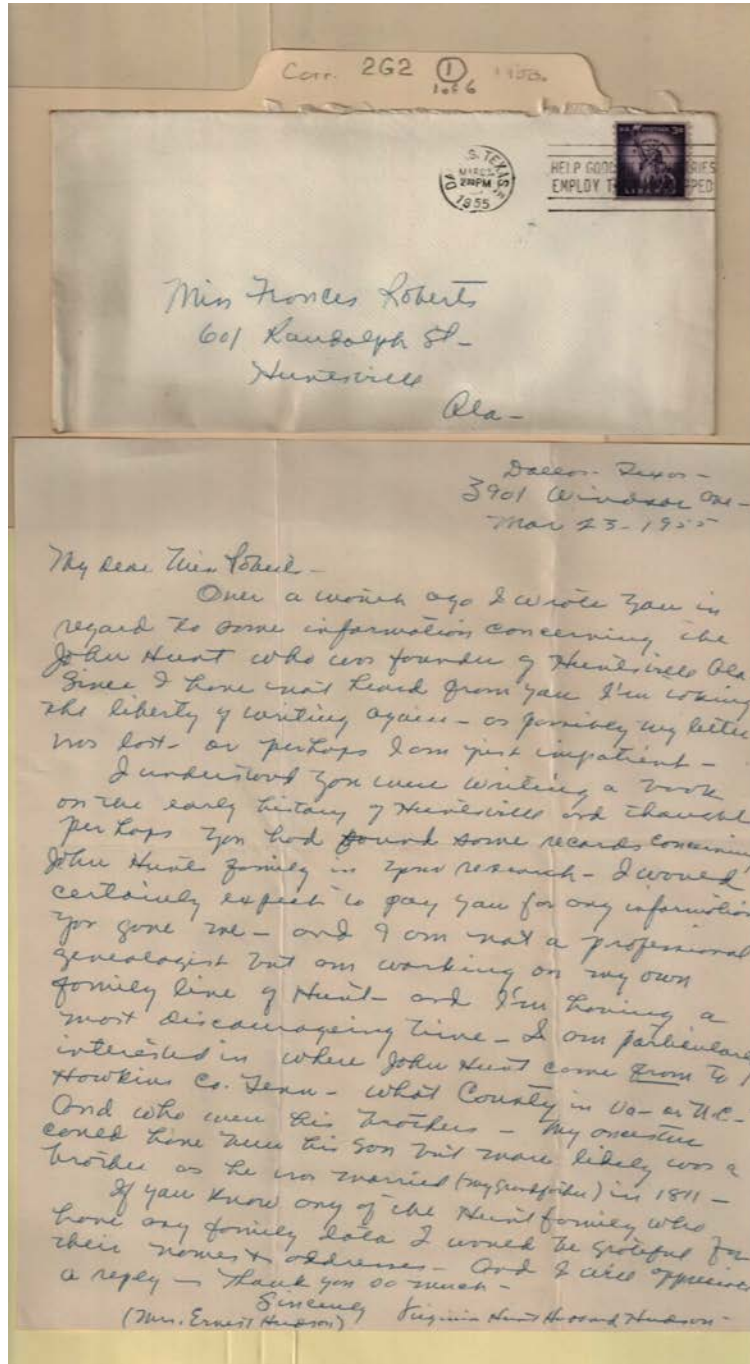 Corr. 2G2 1 1955.
1 of 6
S. TEXAS
MAR 23
2 PM
1955
U.S. POSTAGE 3¢
LIBERTY
HELP GOOD RIES
EMPLOY T PPED
Miss Frances Roberts
601 Randolph St-
Huntsville
Ala-
Dallas- Texas-
3901 Windsor Ave-
Mar 23-1955
My dear Miss Roberts-
Over a month ago I wrote you in
regard to some information concerning the
John Hunt who was founder of Huntsville Ala
Since I have not heard from you I'm taking
the liberty of writing again- as possibly my letter
was lost- or perhaps I am just impatient-
I understood you were writing a book
on the early history of Huntsville and thought
perhaps you had found some records concerning
John Hunts family in your research- I would
certainly expect to pay you for any information
you gave me- and I am not a professional
genealogist but am working on my own
family line of Hunt- and I'm having a
most discourageing time- I am particularly
interested in where John Hunt came from to
Hawkins Co. Tenn- what County in Va- or N.C-
And who were his brothers- My ancestor
could have been his son but more likely was a
brother as he was married (my Grandfather) in 1811-
If you know any of the Hunt family who
have any family data I would be grateful for
their names & addresses- And I will appreciate
a reply- Thank you so much-
Sincerely
(Mrs. Ernest Hudson) Virginia Hunt Hudson-